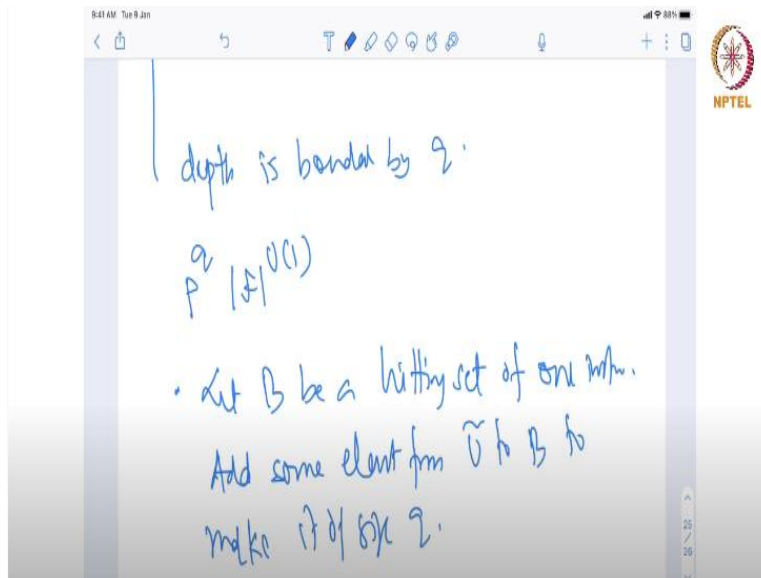 9:41 AM Tue 9 Jan
88%
NPTEL
depth is bounded by q.
p^q |F|^O(1)
• Let B be a hitting set of one instn.
Add some element from Ũ to B to
make it of size q.
25
/
26